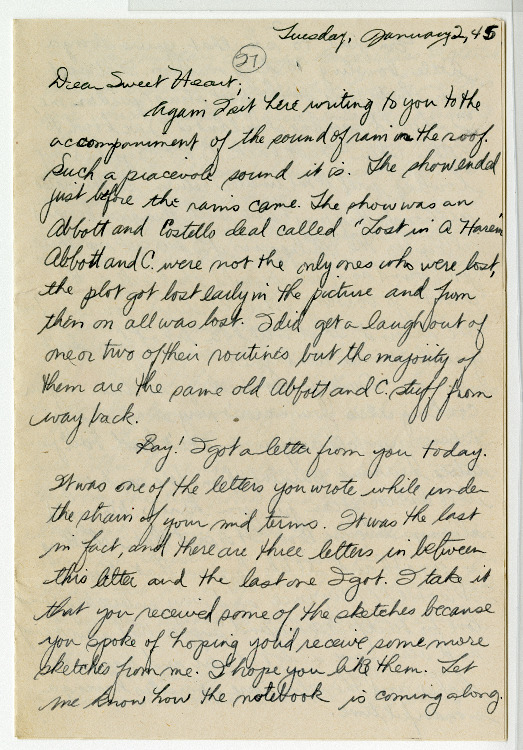 Tuesday, January 2, 45
27
Dear Sweet Heart;
Again I sit here writing to you to the
accompaniment of the sound of rain on the roof.
Such a piacevole sound it is. The show ended
just before the rains came. The show was an
Abbott and Costello deal called "Lost in A Harem"
Abbott and C. were not the only ones who were lost,
the plot got lost early in the picture and from
then on all was lost. I did get a laugh out of
one or two of their routines but the majority of
them are the same old Abbott and C. stuff from
way back.
Say! I got a letter from you today.
It was one of the letters you wrote while under
the strain of your mid terms. It was the last
in fact, and there are three letters in between
this letter and the last one I got. I take it
that you received some of the sketches because
you spoke of hoping you'd receive some more
sketches from me. I hope you like them. Let
me know how the notebook is coming along.